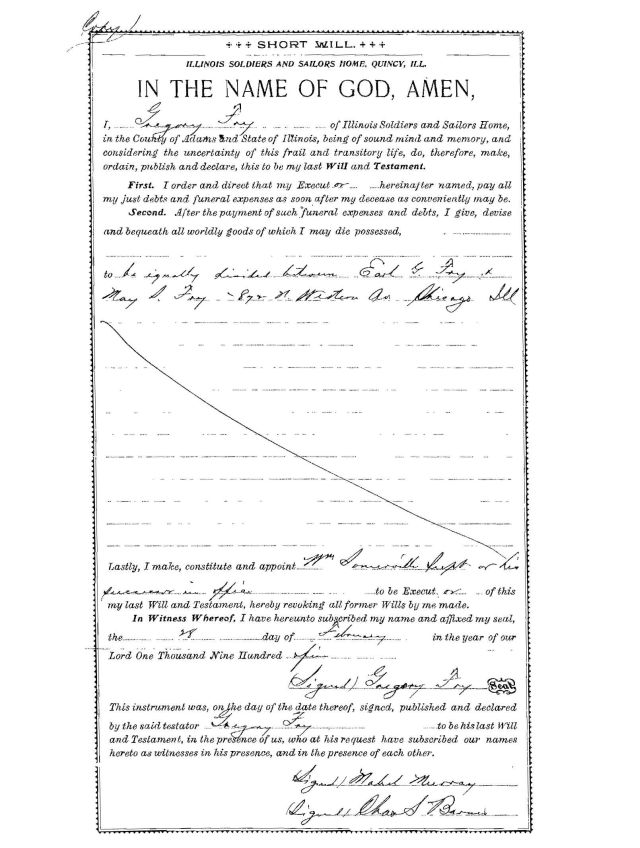 Copy
+++ SHORT WILL. +++
ILLINOIS SOLDIERS AND SAILORS HOME, QUINCY, ILL.
IN THE NAME OF GOD, AMEN,
I, Gregory Fry of Illinois Soldiers and Sailors Home,
in the County of Adams and State of Illinois, being of sound mind and memory, and
considering the uncertainty of this frail and transitory life, do, therefore, make,
ordain, publish and declare, this to be my last Will and Testament.
First. I order and direct that my Execut or hereinafter named, pay all
my just debts and funeral expenses as soon after my decease as conveniently may be.
Second. After the payment of such funeral expenses and debts, I give, devise
and bequeath all worldly goods of which I may die possessed,
to be equally divided between Earl G. Fry &
May S. Fry - 872 N. Western Av Chicago Ill
Lastly, I make, constitute and appoint Wm Somerville Supt or his
successor in office to be Execut or of this
my last Will and Testament, hereby revoking all former Wills by me made.
In Witness Whereof, I have hereunto subscribed my name and affixed my seal,
the 28 day of February in the year of our
Lord One Thousand Nine Hundred
Signed) Gregory Fry Seal
This instrument was, on the day of the date thereof, signed, published and declared
by the said testator Gregory Fry to be his last Will
and Testament, in the presence of us, who at his request have subscribed our names
hereto as witnesses in his presence, and in the presence of each other.
Signed) Mabel Murray
(Signed) Chas S